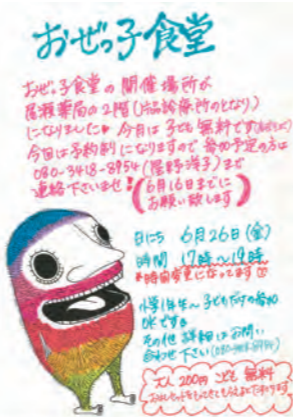 おぜっ子食堂
おぜっ子食堂の開催場所が
尾瀬薬局の2階(片品診療所のとなり)
になりました 今月は子ども無料です
今回は予約制になりますので 参加予定の方は
080-3418-8954(星野洋子)まで
連絡下さいませ!
(6月16日までに
お願い致します)
日にち 6月26日(金)
時間 17時〜19時
*時間変更になってます
小学1年生〜子どもだけの参加
OKです
その他 詳細はお問い
合わせ下さい(080-3418-8954)
大人200円 こども 無料